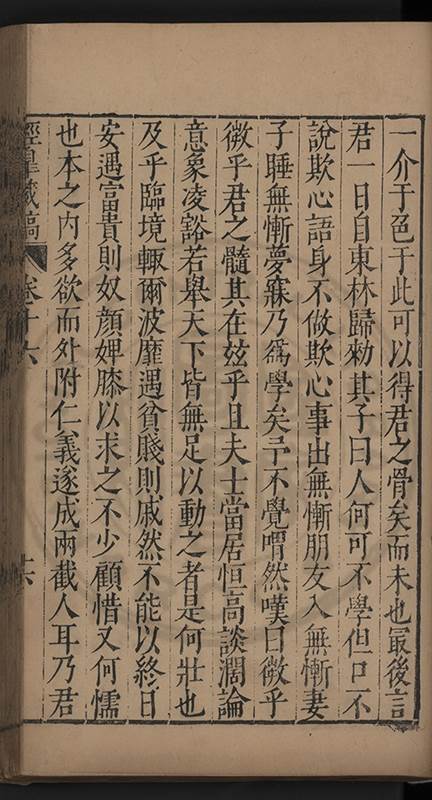 一介于邑于此可以得君之骨矣而未也最後言
君一日自東林歸勑其子曰人何可不學但口不
說欺心語身不做欺心事出無慚朋友入無慚妻
子睡無慚夢寐乃爲學矣予不覺喟然嘆曰微乎
微乎君之髓其在茲乎且夫士當居恒高談濶論
意象凌谿若舉天下皆無足以動之者是何壯也
及乎臨境輙爾波靡遇貧賤則戚然不能以終日
安遇富貴則奴顏婢膝以求之不少顧惜又何懦
也本之內多欲而外附仁義遂成兩截人耳乃君
涇臯藏稿 卷十六 十六